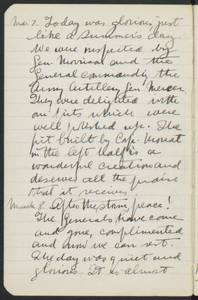 Mar. 7. Today was glorious just
like a Summer's day
We were inspected by
Gen Morrison and the
General commanding the
Army Artillery, Gen Mercer.
They were delighted with
our pits which were
well polished up. The
pit built by Capt.
in the left Half is a
wonderful creation and
deserves all the praise
that it receives.
March 8. After the storm, peace!
The Generals have come
and gone, complimented
and now we can rest.
The day was quiet and
glorious. It is almost